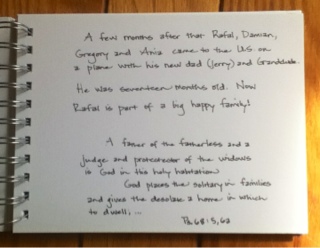 A few months after that Rafal, Damian,
Gregory and Ania came to the U.S. on
a plane with his new dad (Jerry) and Grandchale.
He was seventeen months old. Now
Rafal is part of a big happy family!
A father of the fatherless and a
judge and protector of the widows
is God in this holy habitation
God places the solitary in families
and gives the desolate a home in which
to dwell; ...
Ps. 68:5,6a